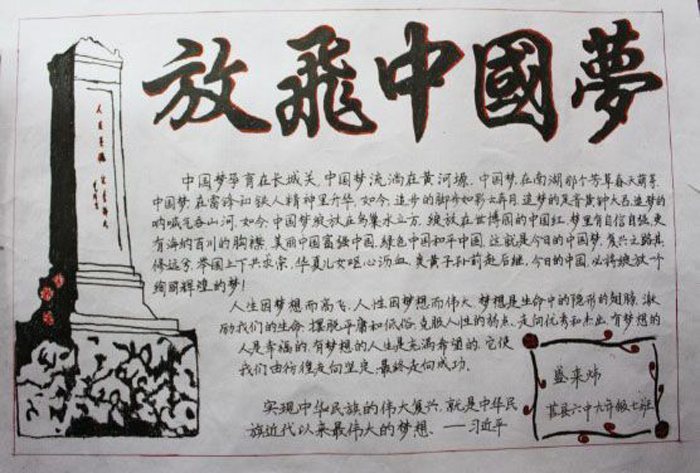 放飛中國夢
中国梦孕育在长城关,中国梦流淌在黄河塬.中国梦,在南湖那个芳草春天萌芽.
中国梦,在雷锋和铁人精神里升华.如今,追步的脚步如彩云弄月.追梦的足音黄钟大吕,追梦的
呐喊气吞山河.如今,中国梦绽放在鸟巢水立方.绽放在世博园的中国红.梦里有自信自强,更
有海纳百川的胸襟.美丽中国富强中国,绿色中国和平中国.这就是今日的中国梦.复兴之路其
修远兮.举国上下共求索,华夏儿女呕心沥血.炎黄子孙前赴后继.今日的中国,必将绽放一个
绚丽辉煌的梦!
人生因梦想而高飞.人性因梦想而伟大.梦想是生命中的隐形的翅膀.激
励我们的生命.摆脱平庸和低俗.克服人性的弱点.走向优秀和杰出.有梦想的
人是幸福的.有梦想的人生是充满希望的.它使
我们由彷徨走向坚定.最终走向成功.
实现中华民族的伟大复兴,就是中华民
族近代以来最伟大的梦想.——习近平
盛来炜
莒县六中九年级七班